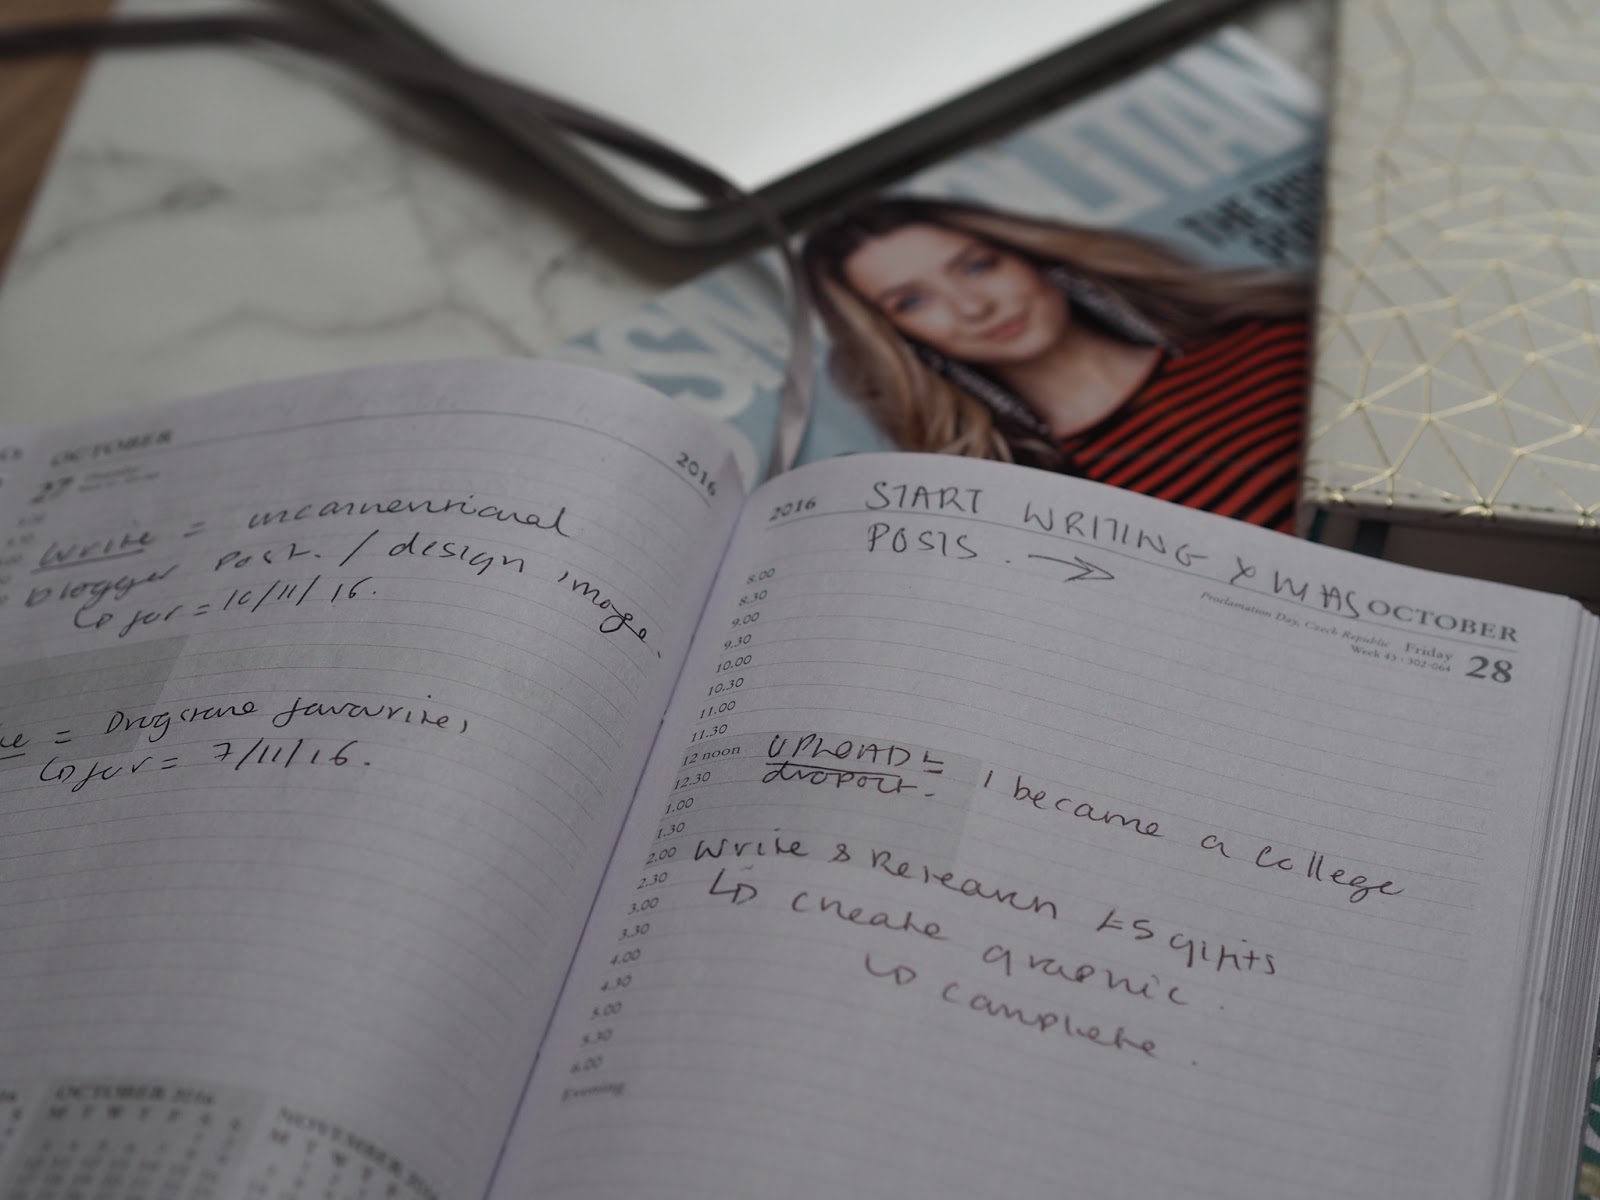 OCTOBER
2016
27
Write = unconventional
blogger post. / design image.
↳ for = 10/11/16.
= Drugstore favourites
↳ for = 7/11/16.
OCTOBER 2016
M T W T F S S
NOVEMBER 2016
M T W T F
2016
START WRITING XMAS
POSTS. →
OCTOBER
Proclamation Day, Czech Republic
Friday
28
Week 43 · 302-064
8.00
8.30
9.00
9.30
10.00
10.30
11.00
11.30
12 noon
12.30
1.00
1.30
2.00
2.30
3.00
3.30
4.00
4.30
5.00
5.30
6.00
Evening
UPLOAD = I became a college
dropout.
Write & Research £5 gifts
↳ create graphic.
↳ complete.
SM
LITAN
THE